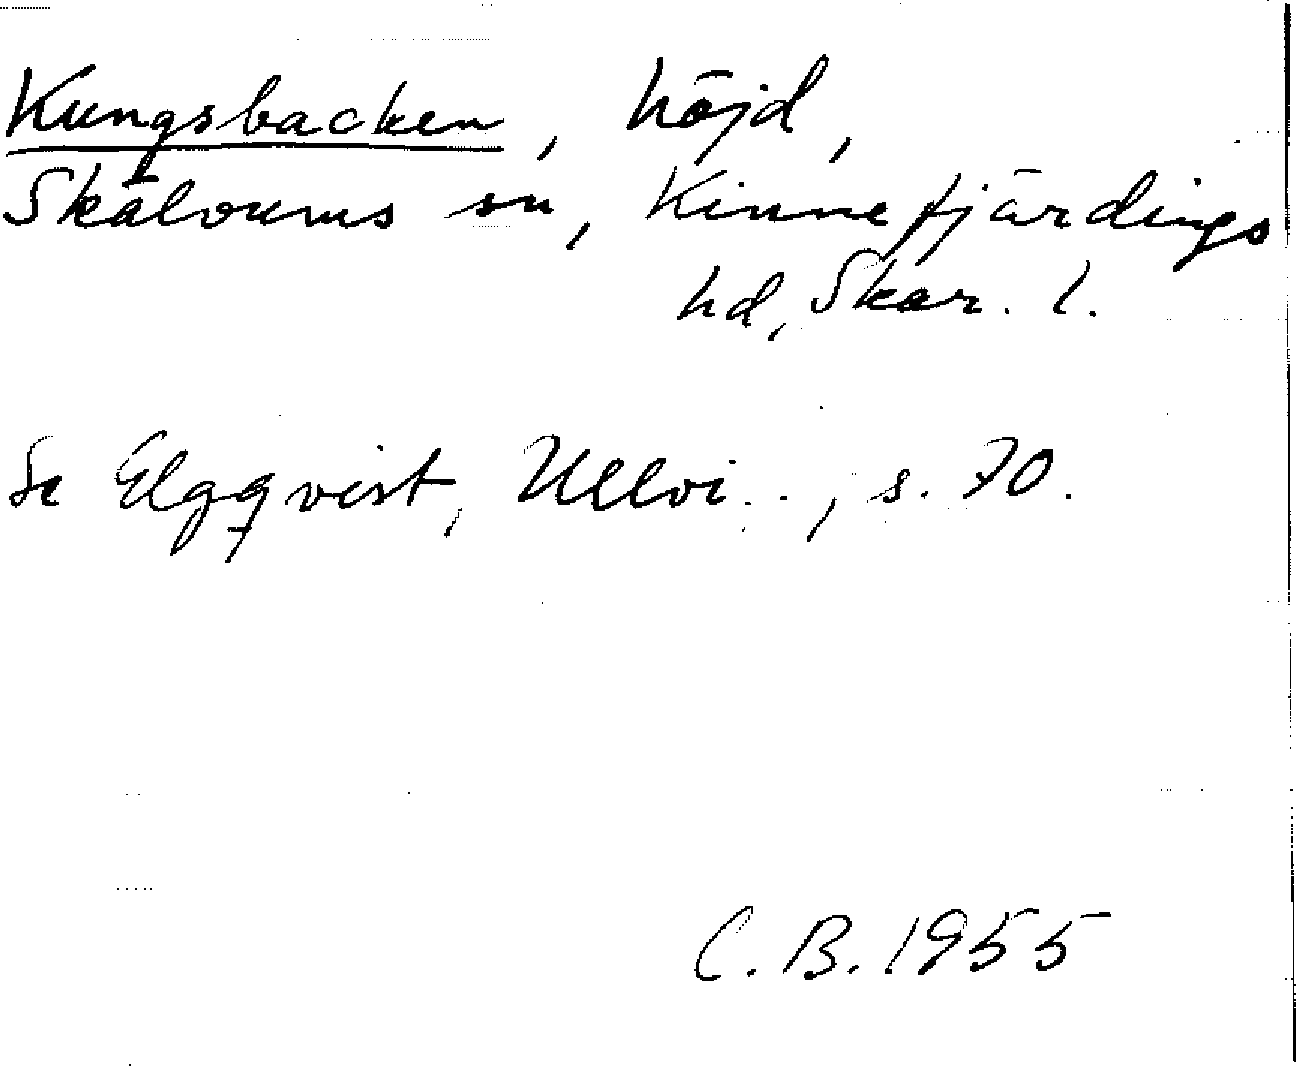 Kungsbacken, höjd,
Skälvums sn, Kinnefjärdings
hd, Skar. l.
Se Elgqvist, Ullvi..., s. 70.
C. B. 1955